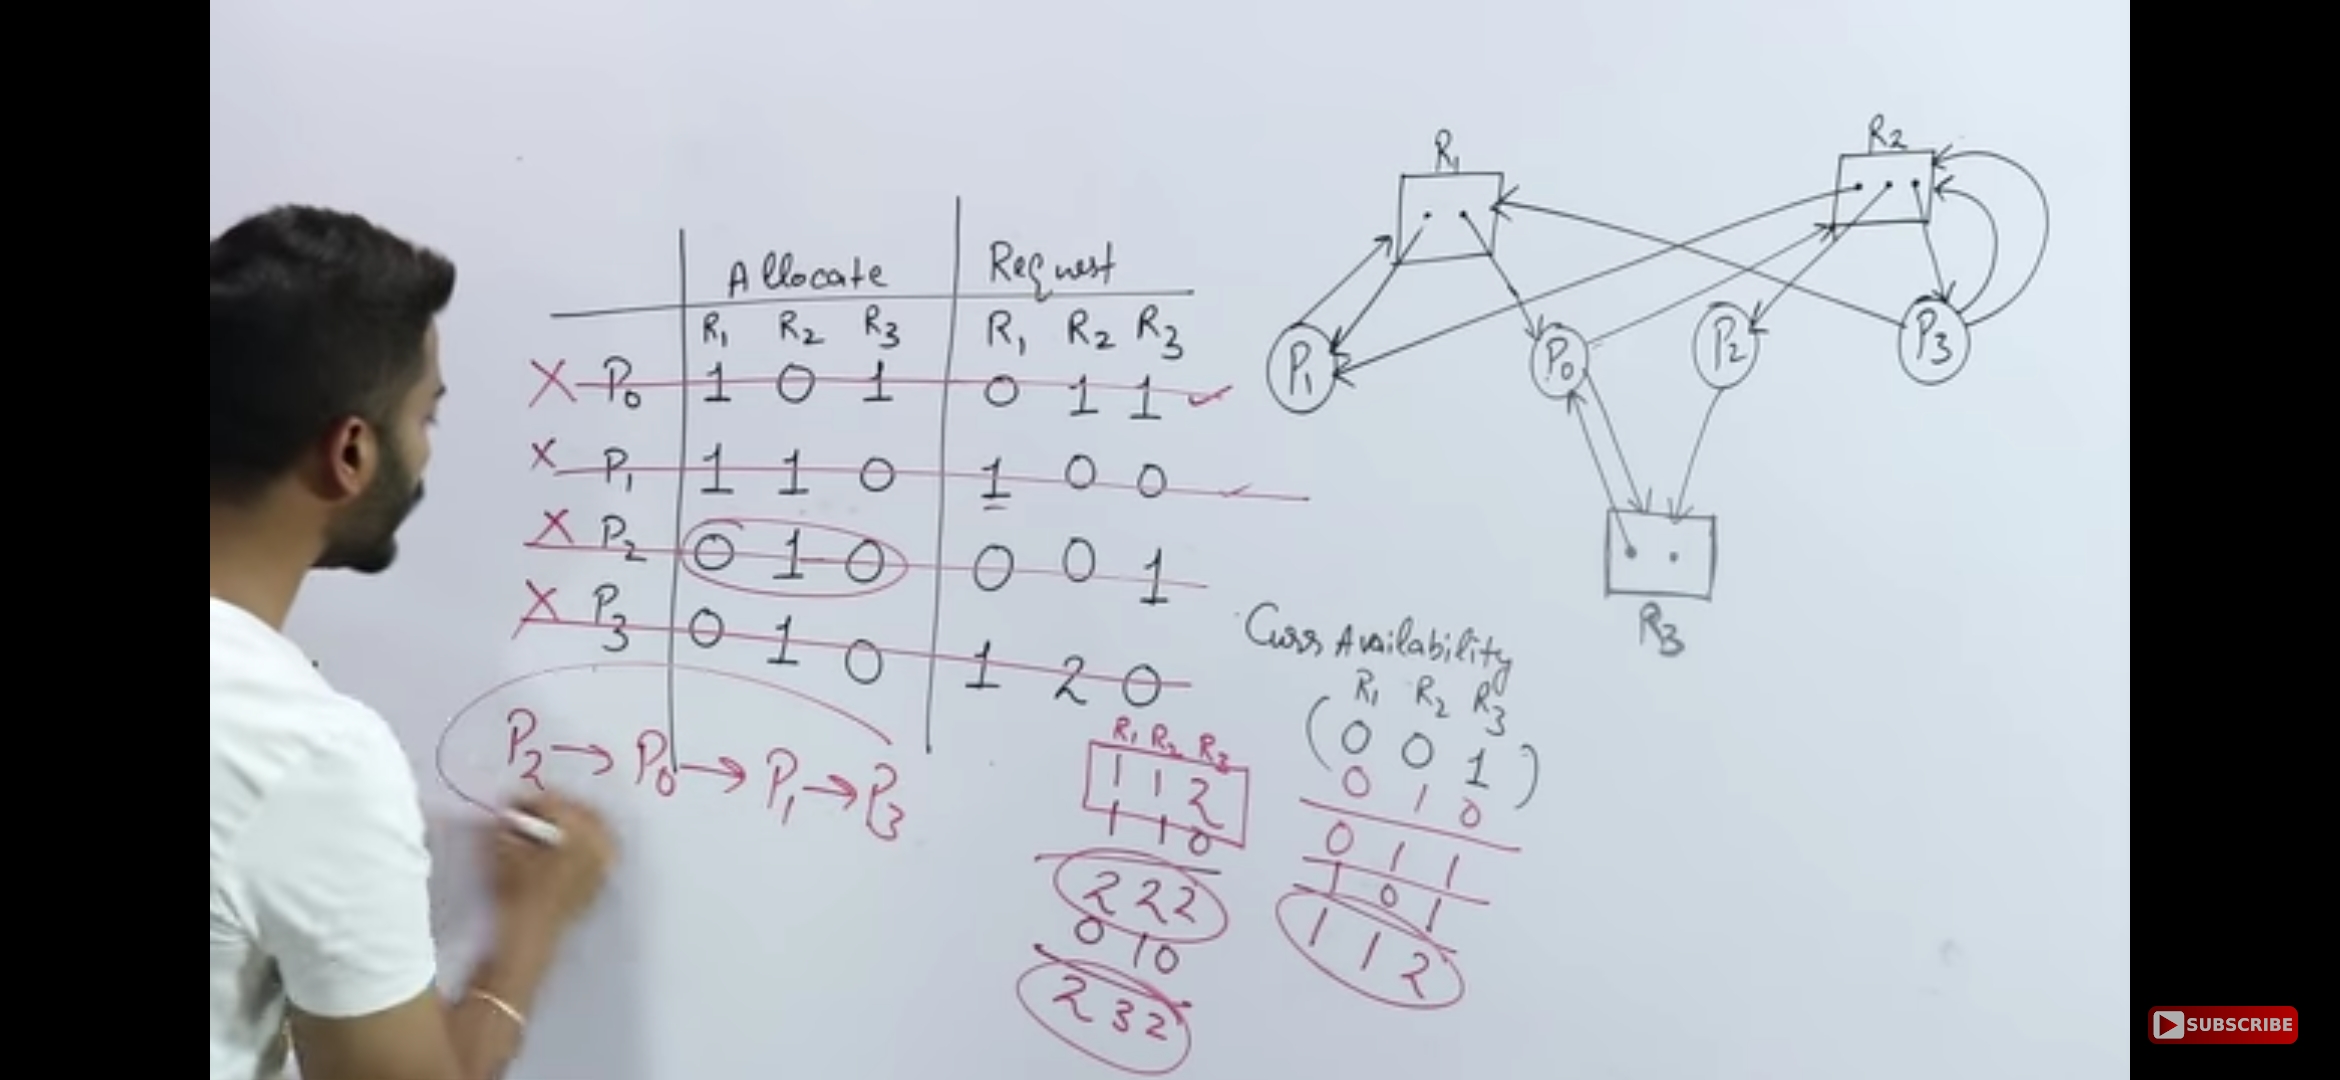 Allocate Request
R1 R2 R3 R1 R2 R3
X P0 1 0 1 0 1 1 ✓
X P1 1 1 0 1 0 0 ✓
X P2 0 1 0 0 0 1
X P3 0 1 0 1 2 0
P2 → P0 → P1 → P3
R1 R2 R3
1 1 2
1 1 0
2 2 2
0 1 0
2 3 2
Curr Availability
R1 R2 R3
(0 0 1)
0 1 0
0 1 1
1 0 1
1 1 2
R1 R2
P1 P0 P2 P3
R3
SUBSCRIBE